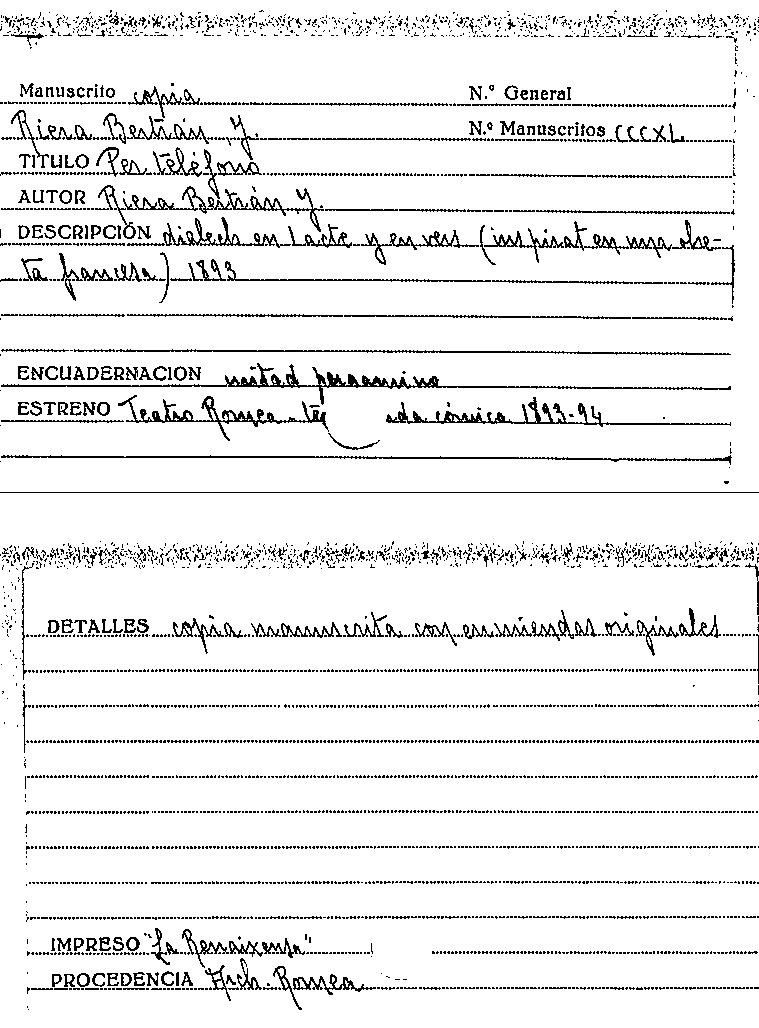 Manuscrito copia N.º General
Riera Bertrán, J. N.º Manuscritos CCCXL
TITULO Per teléfono
AUTOR Riera Bertrán, J.
DESCRIPCIÓN dialech en 1 acte y en vers (inspirat en una obre-
ta francesa) 1893
ENCUADERNACION mitad pergamino
ESTRENO Teatro Romea - ada cómica 1893-94
DETALLES copia manuscrita con enmiendas originales
IMPRESO "La Renaixensa"
PROCEDENCIA Arch. Romea